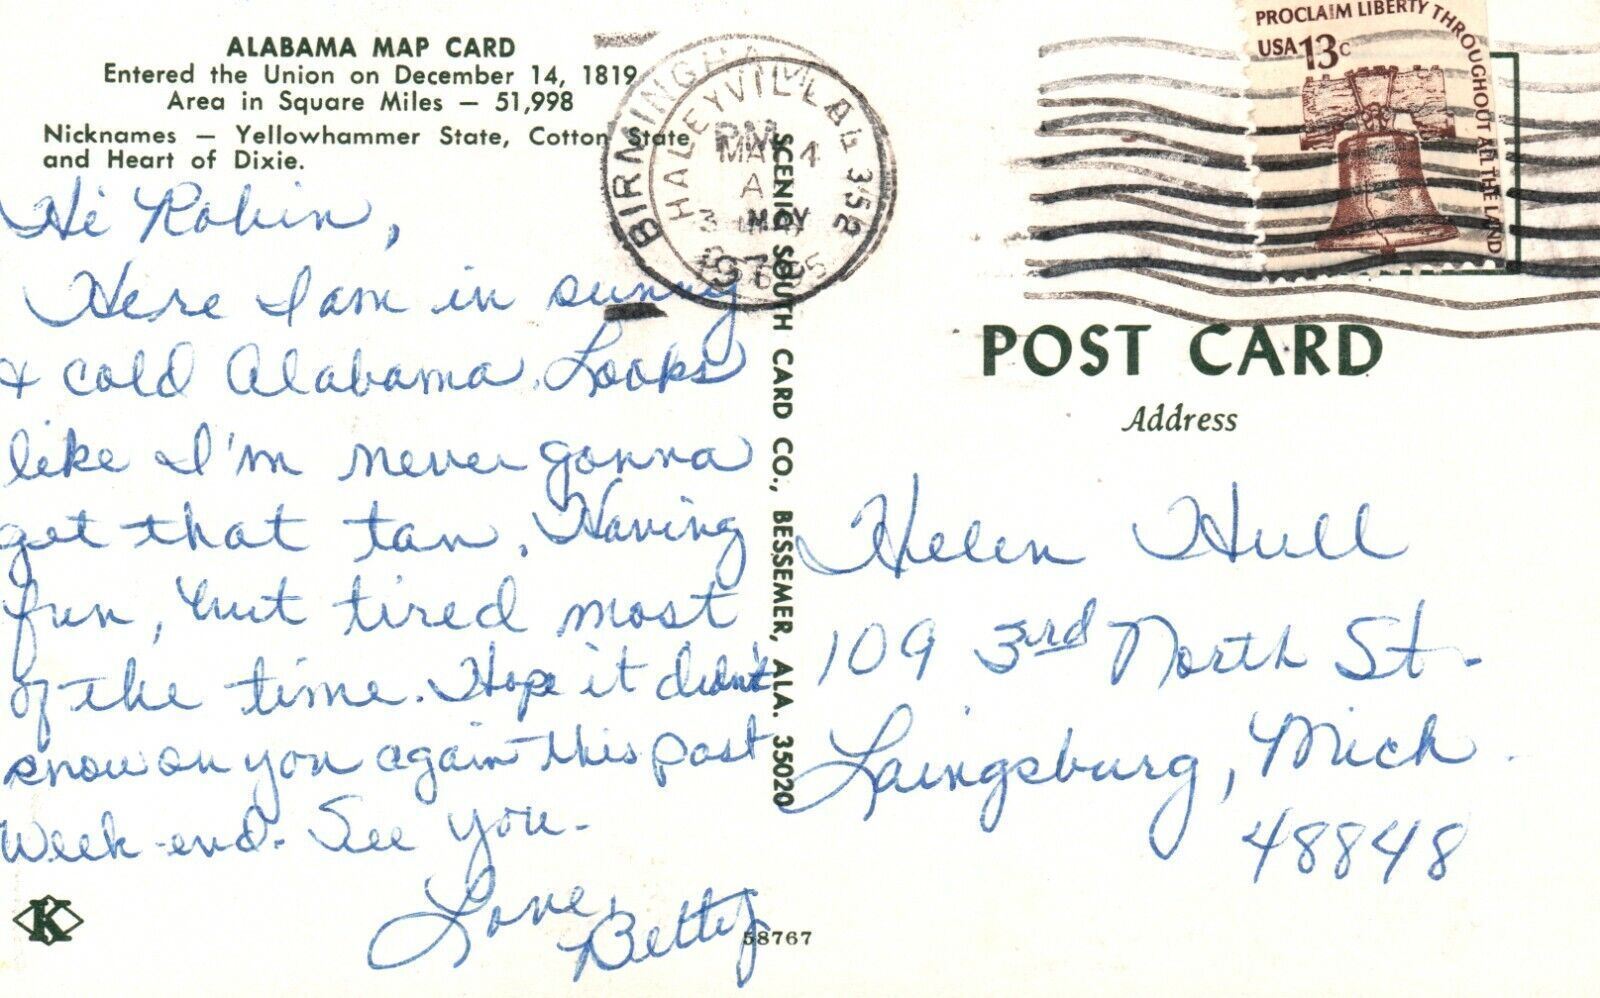 ALABAMA MAP CARD
Entered the Union on December 14, 1819
Area in Square Miles — 51,998
Nicknames — Yellowhammer State, Cotton State
and Heart of Dixie.
Hi Robin,
Here I am in sunny
& cold Alabama. Looks
like I'm never gonna
get that tan. Having
fun, but tired most
of the time. Hope it didn't
snow on you again this past
week-end. See you.
Love,
Betty
K
58767
SCENIC SOUTH CARD CO., BESSEMER, ALA. 35020
BIRMINGHAM
HALEYVILLE
PM
MAY
PROCLAIM LIBERTY THROUGHOUT ALL THE LAND
USA 13c
POST CARD
Address
Helen Hull
109 3rd North St.
Laingsburg, Mich.
48848